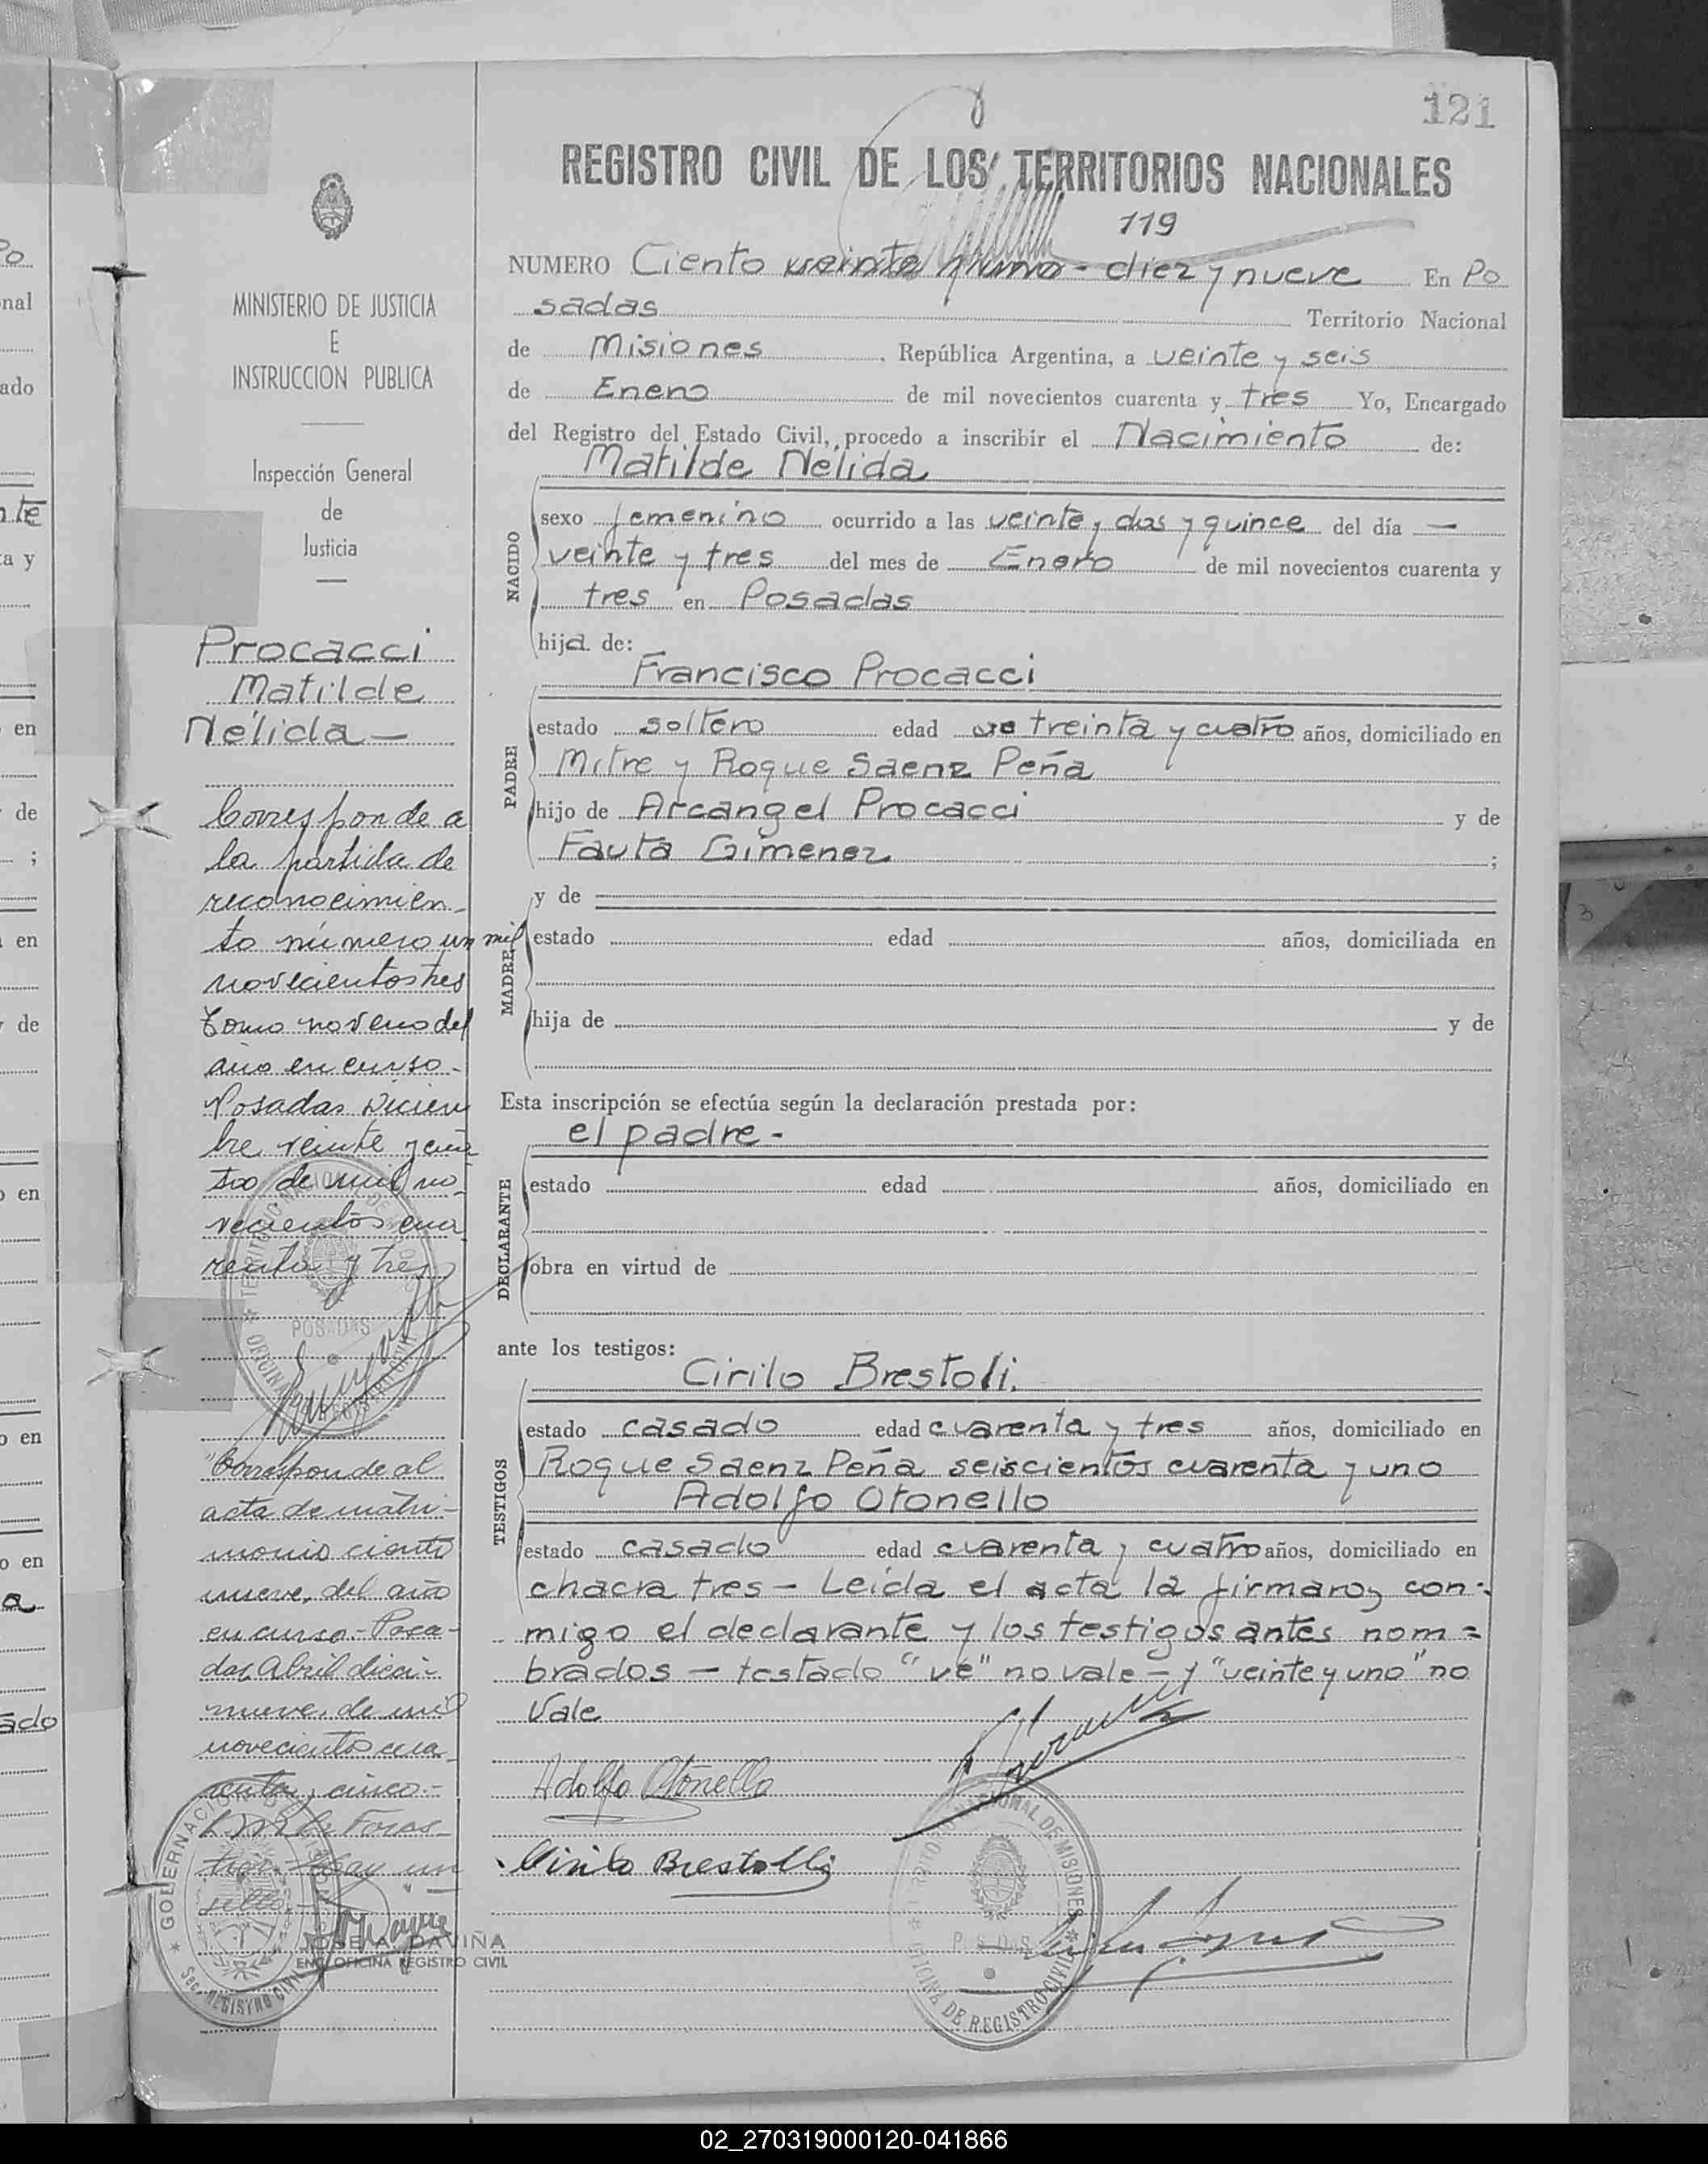 121
REGISTRO CIVIL DE LOS TERRITORIOS NACIONALES
119
NUMERO Ciento veinte y uno - diez y nueve En Po
sadas Territorio Nacional
de Misiones, República Argentina, a veinte y seis
de Enero de mil novecientos cuarenta y tres Yo, Encargado
del Registro del Estado Civil, procedo a inscribir el Nacimiento de:
Matilde Nélida
NACIDO
sexo femenino ocurrido a las veinte y dos y quince del día —
veinte y tres del mes de Enero de mil novecientos cuarenta y
tres en Posadas
hija de:
Francisco Procacci
PADRE
estado soltero edad ve treinta y cuatro años, domiciliado en
Mitre y Roque Saenz Peña
hijo de Arcangel Procacci y de
Fauta Gimenez ;
y de
MADRE
estado edad años, domiciliada en
hija de y de
Esta inscripción se efectúa según la declaración prestada por:
el padre -
DECLARANTE
estado edad años, domiciliado en
obra en virtud de
ante los testigos:
Cirilo Brestoli.
TESTIGOS
estado casado edad cuarenta y tres años, domiciliado en
Roque Saenz Peña seiscientos cuarenta y uno
Adolfo Otonello
estado casado edad cuarenta y cuatro años, domiciliado en
chacra tres - Leída el acta la firmaron con-
migo el declarante y los testigos antes nom=
brados — testado "ve" no vale - y "veinte y uno" no
vale
Adolfo Otonello
Cirilo Brestolli
TERRITORIO NACIONAL DE MISIONES
POSADAS
OFICINA DE REGISTRO CIVIL
MINISTERIO DE JUSTICIA
E
INSTRUCCION PUBLICA
Inspección General
de
Justicia
Procacci
Matilde
Nélida -
Corresponde a
la partida de
reconocimien-
to número un mil
novecientos tres
tomo noveno del
año en curso -
Posadas Diciem
bre veinte y cua
tro de mil no-
vecientos cua
renta y tres
POSADAS
"Corresponde al
acta de matri-
monio ciento
nueve, del año
en curso.- Posa-
das, Abril dieci-
nueve, de mil
novecientos cua-
renta y cinco.-
hay un
sello
GOBERNACION DE MISIONES
Sec. REGISTRO CIVIL
JOSE A. DAVIÑA
ENC. OFICINA REGISTRO CIVIL
02_270319000120-041866